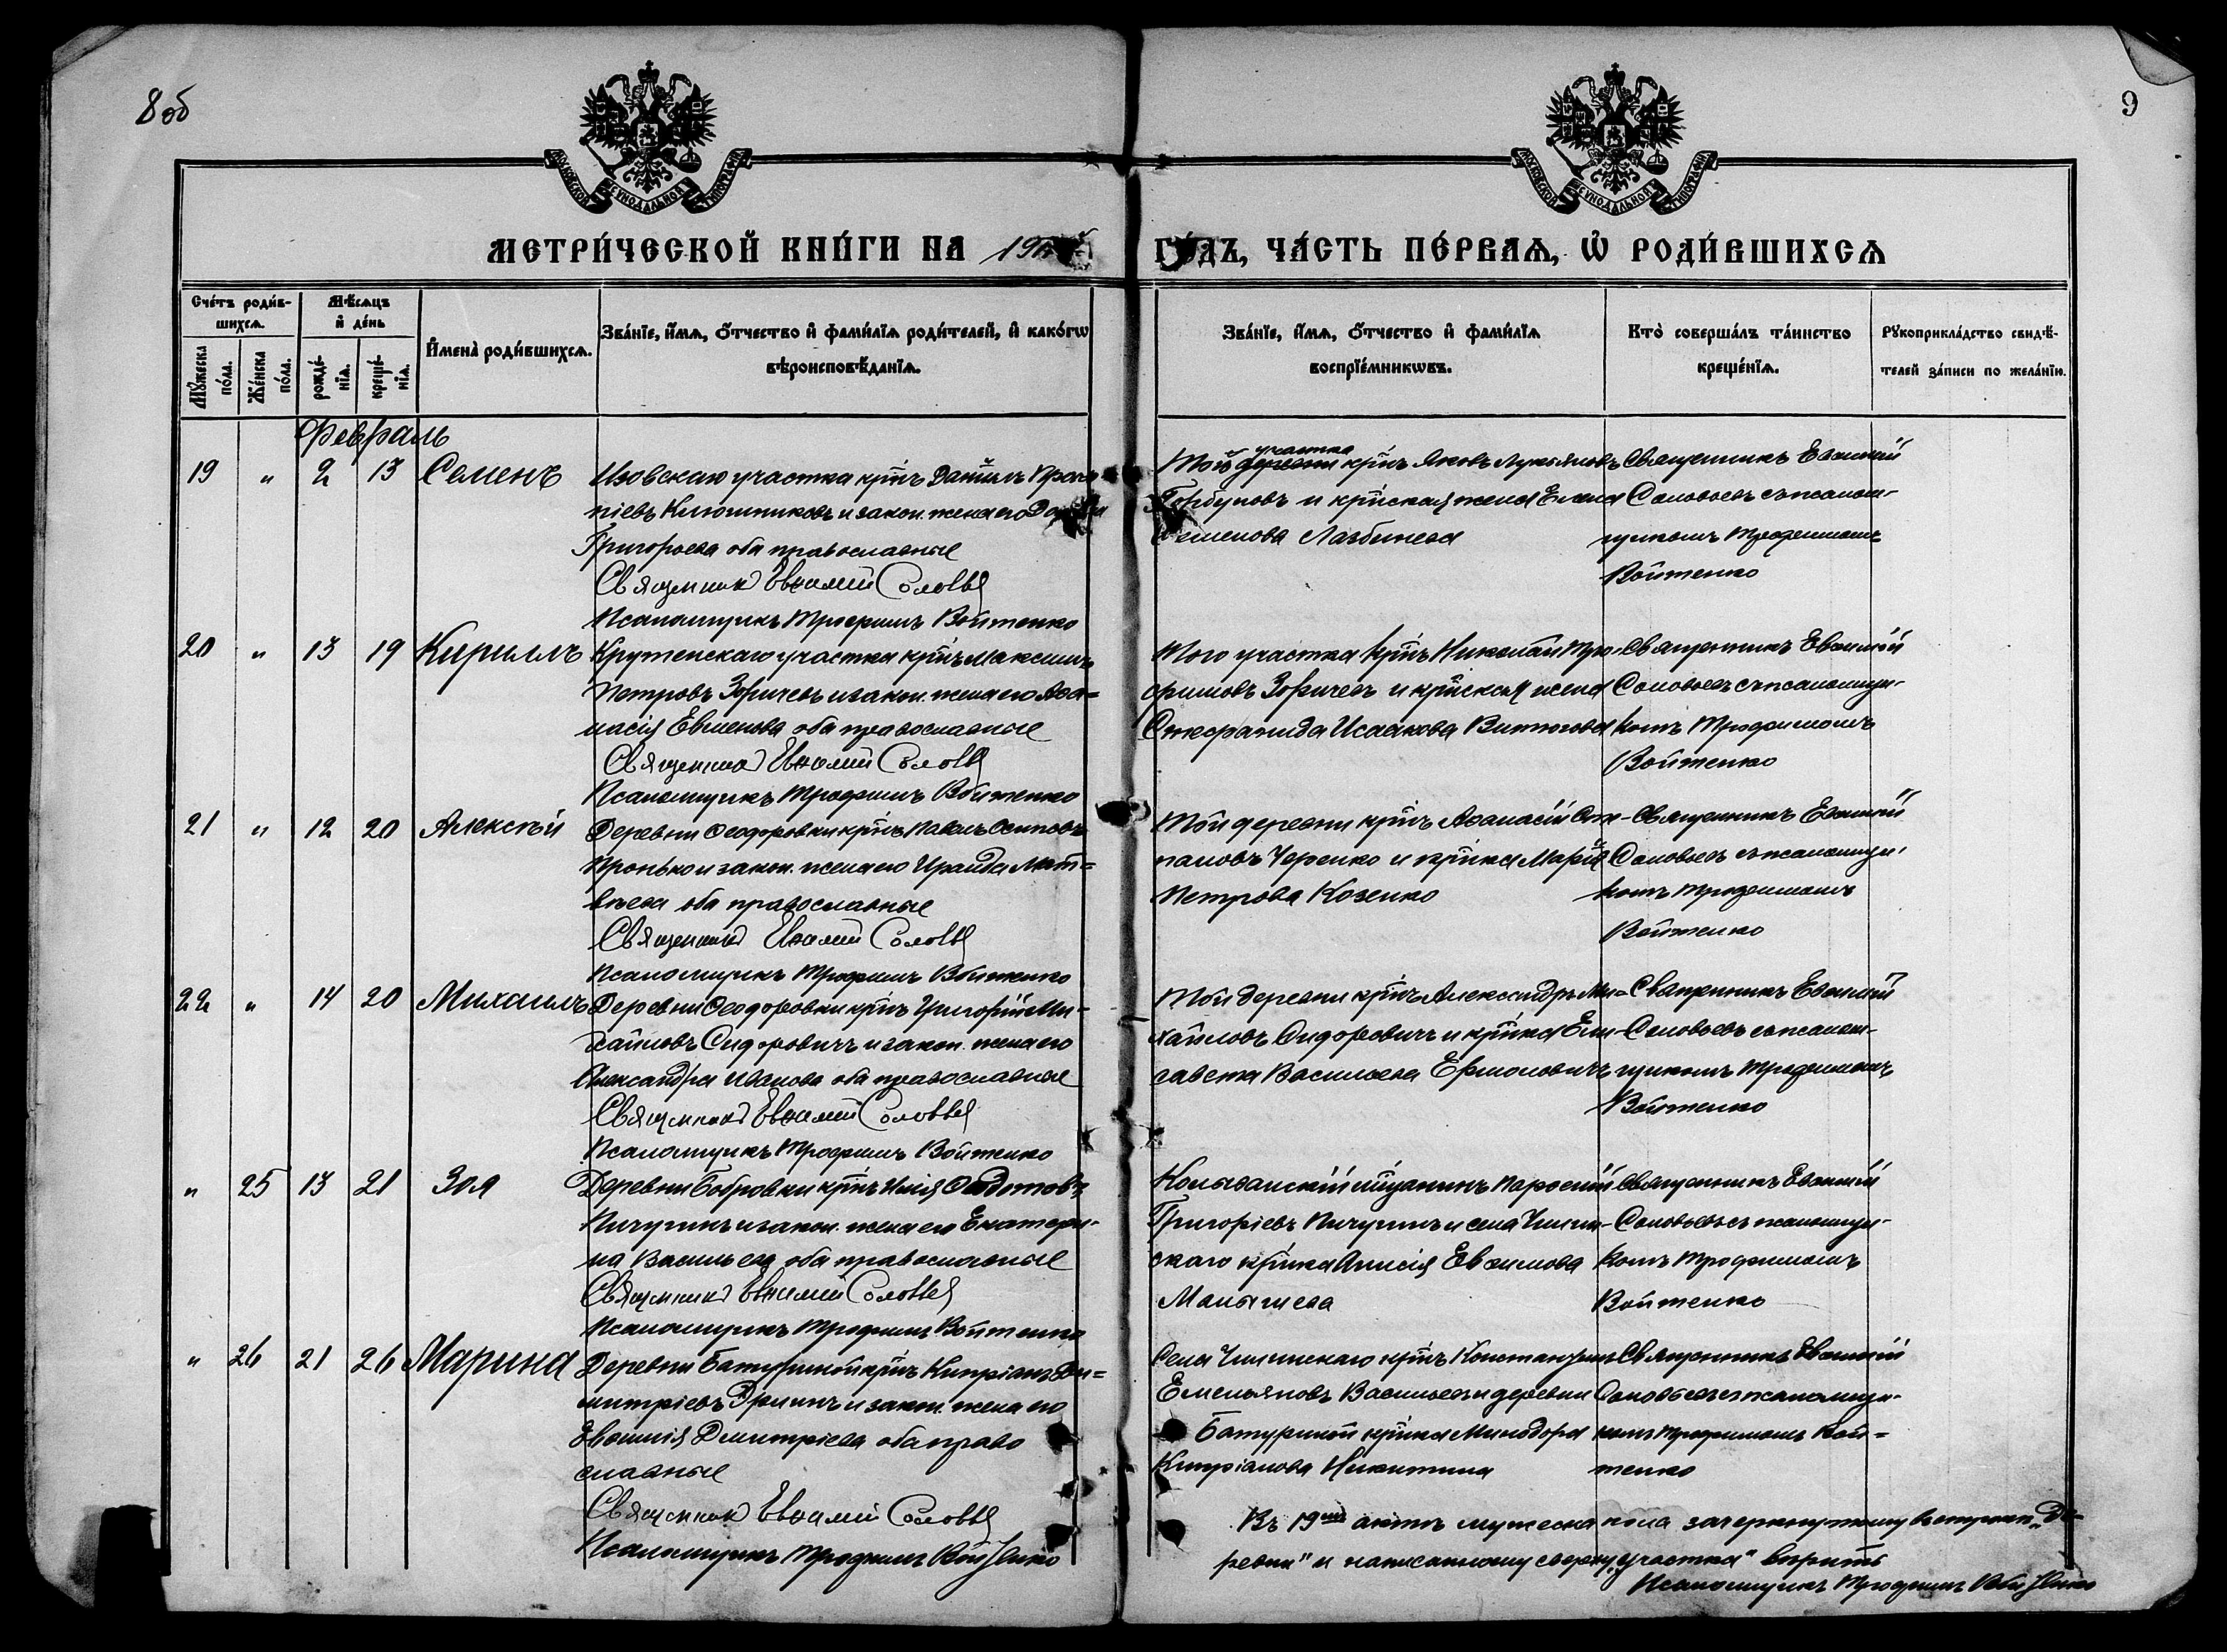 8 об
9
МОСКОВСКОЙ СѴНОДАЛЬНОЙ ТИПОГРАФІИ
МОСКОВСКОЙ СѴНОДАЛЬНОЙ ТИПОГРАФІИ
МЕТРИ́ЧЕСКОЙ КНИ́ГИ НА 19
ГО́ДЪ, ЧА́СТЬ ПЕ́РВАѦ, Ѡ҆ РОДИ́ВШИХСѦ
Сче́тъ роди́в-
шихсѧ.
Мꙋ́жеска по́ла.
Же́нска по́ла.
Мѣ́сѧцъ
и҆ де́нь
рожде́-нїѧ.
креще́-нїѧ.
И҆мена̀ роди́вшихсѧ.
Зва́нїе, и҆́мѧ, ѻ҆́тчество и҆ фами́лїѧ роди́телей, и҆ како́гѡ
вѣроисповѣ́данїѧ.
Зва́нїе, и҆́мѧ, ѻ҆́тчество и҆ фами́лїѧ
воспрїе́мникѡвъ.
Кто̀ соверша́лъ та́инство
креще́нїѧ.
Рꙋкоприкла́дство свидѣ́-
телей за́писи по жела́нїю.
Февраль
19 " 2 13 Семенъ
Изовскаго участка кр̃нъ Даніилъ Проко-
піевъ Ключниковъ и закон. жена его
Григорьева оба православные
Священник Евѳимій Соловьев
Псаломщикъ Трофимъ Войтенко
Той участка деревни кр̃нъ Яковъ Лукьяновъ
Горбуновъ и кр̃нская жена Елена
Семенова
Священникъ Евѳимій
Соловьевъ съ псалом-
щикомъ Трофимомъ
Войтенко
20 " 13 19 Кириллъ
Крутенскаго участка кр̃нъ Максимъ
Петровъ Зоричевъ и закон. жена его Аѳа-
насія Евменова оба православные
Священник Евѳимій Соловьев
Псаломщикъ Трофимъ Войтенко
Того участка кр̃нъ Николай Тро-
фимовъ Зоричевъ и кр̃нская жена
Стефанида Исаакова
Священникъ Евѳимій
Соловьевъ съ псаломщи-
комъ Трофимомъ
Войтенко
21 " 12 20 Алексѣй
Деревни Ѳеодоровки кр̃нъ Павелъ Осиповъ
Пронько и закон. жена его Ираида Мат=
вѣева оба православные
Священник Евѳимій Соловьев
Псаломщикъ Трофимъ Войтенко
Той деревни кр̃нъ Аѳанасій Сте-
пановъ Черенко и кр̃нка Марія
Петрова Козенко
Священникъ Евѳимій
Соловьевъ съ псаломщи-
комъ Трофимомъ
Войтенко
22 " 14 20 Михаилъ
Деревни Ѳеодоровки кр̃нъ Григорій Ми-
хайловъ Сидоровичъ и закон. жена его
Александра Иванова оба православные
Священник Евѳимій Соловьев
Псаломщикъ Трофимъ Войтенко
Той деревни кр̃нъ Александръ Ми-
хайловъ Сидоровичъ и кр̃нка Ели-
савета Васильева Ермоловичъ
Священникъ Евѳимій
Соловьевъ съ псалом-
щикомъ Трофимомъ
Войтенко
" 25 13 21 Зоя
Деревни Бобровки кр̃нъ Илія Ѳедотовъ
Пичугинъ и закон. жена его Екатери-
на Васильева оба православные
Священник Евѳимій Соловьев
Псаломщикъ Трофимъ Войтенко
Колыванскій мѣщанинъ Парѳеній
Григоріевъ Пичугинъ и села Чилин-
скаго кр̃нка Анисія Евѳимова
Малышева
Священникъ Евѳимій
Соловьевъ съ псаломщи-
комъ Трофимомъ
Войтенко
" 26 21 26 Марина
Деревни Батуриной кр̃нъ Кипріанъ Ди-
митріевъ и закон. жена его
Евѳимія Димитріева оба право
славные
Священник Евѳимій Соловьев
Псаломщикъ Трофимъ Войтенко
Села Чилинскаго кр̃нъ Константинъ
Емельяновъ Васильевъ и деревни
Батуриной кр̃нка Минодора
Кипріанова Никитина
Священникъ Евѳимій
Соловьевъ съ псаломщи-
комъ Трофимомъ Вой=
тенко
Въ 19мъ актѣ мужеска пола зачеркнутому въ строкѣ „Де-
ревни" и написанному сверху „участка" вѣрить
Псаломщикъ Трофимъ Войтенко